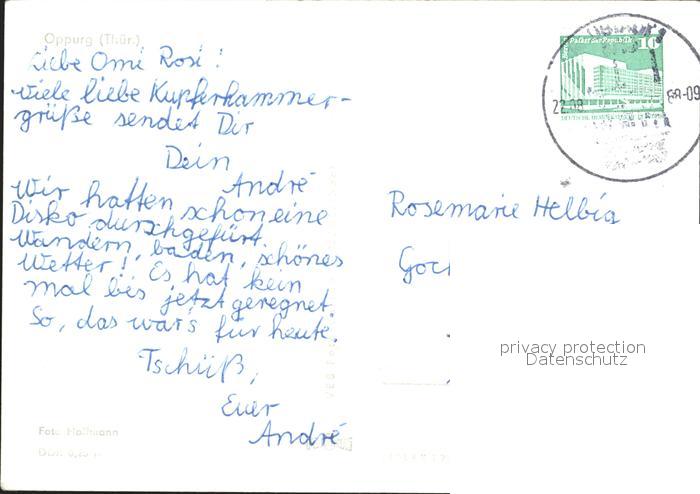 Oppurg (Thür.)
Liebe Omi Rosi!
viele liebe Kupferhammer-
grüße sendet Dir
Dein
André
Wir hatten schon eine
Disko durchgefürt.
Wandern, baden, schönes
Wetter! Es hat kein
mal bis jetzt geregnet.
So, das war's für heute.
Tschüß,
Euer
André
Foto Hoffmann
Palast der Republik 10
22.-8. 88-09
Rosemarie Helbig
privacy protection
Datenschutz